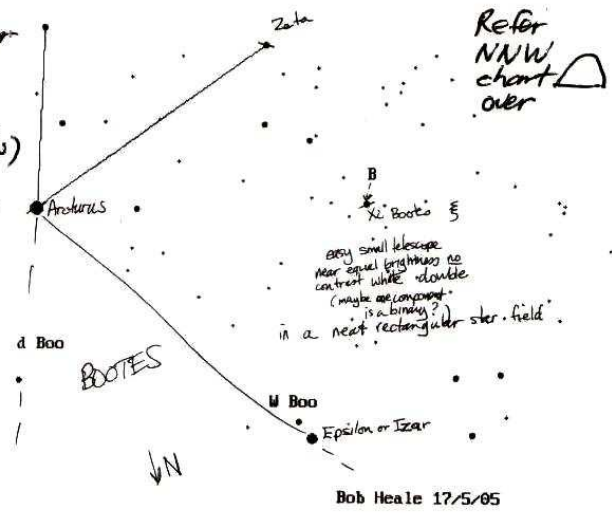 Zeta
Refer
NNW
chart
over
Arcturus
B
Xi Bootes ξ
easy small telescope
near equal brightness no
contrast white double
(maybe one component
is a binary?)
in a neat rectangular star field
d Boo
BOOTES
W Boo
Epsilon or Izar
↓N
Bob Heale 17/5/05